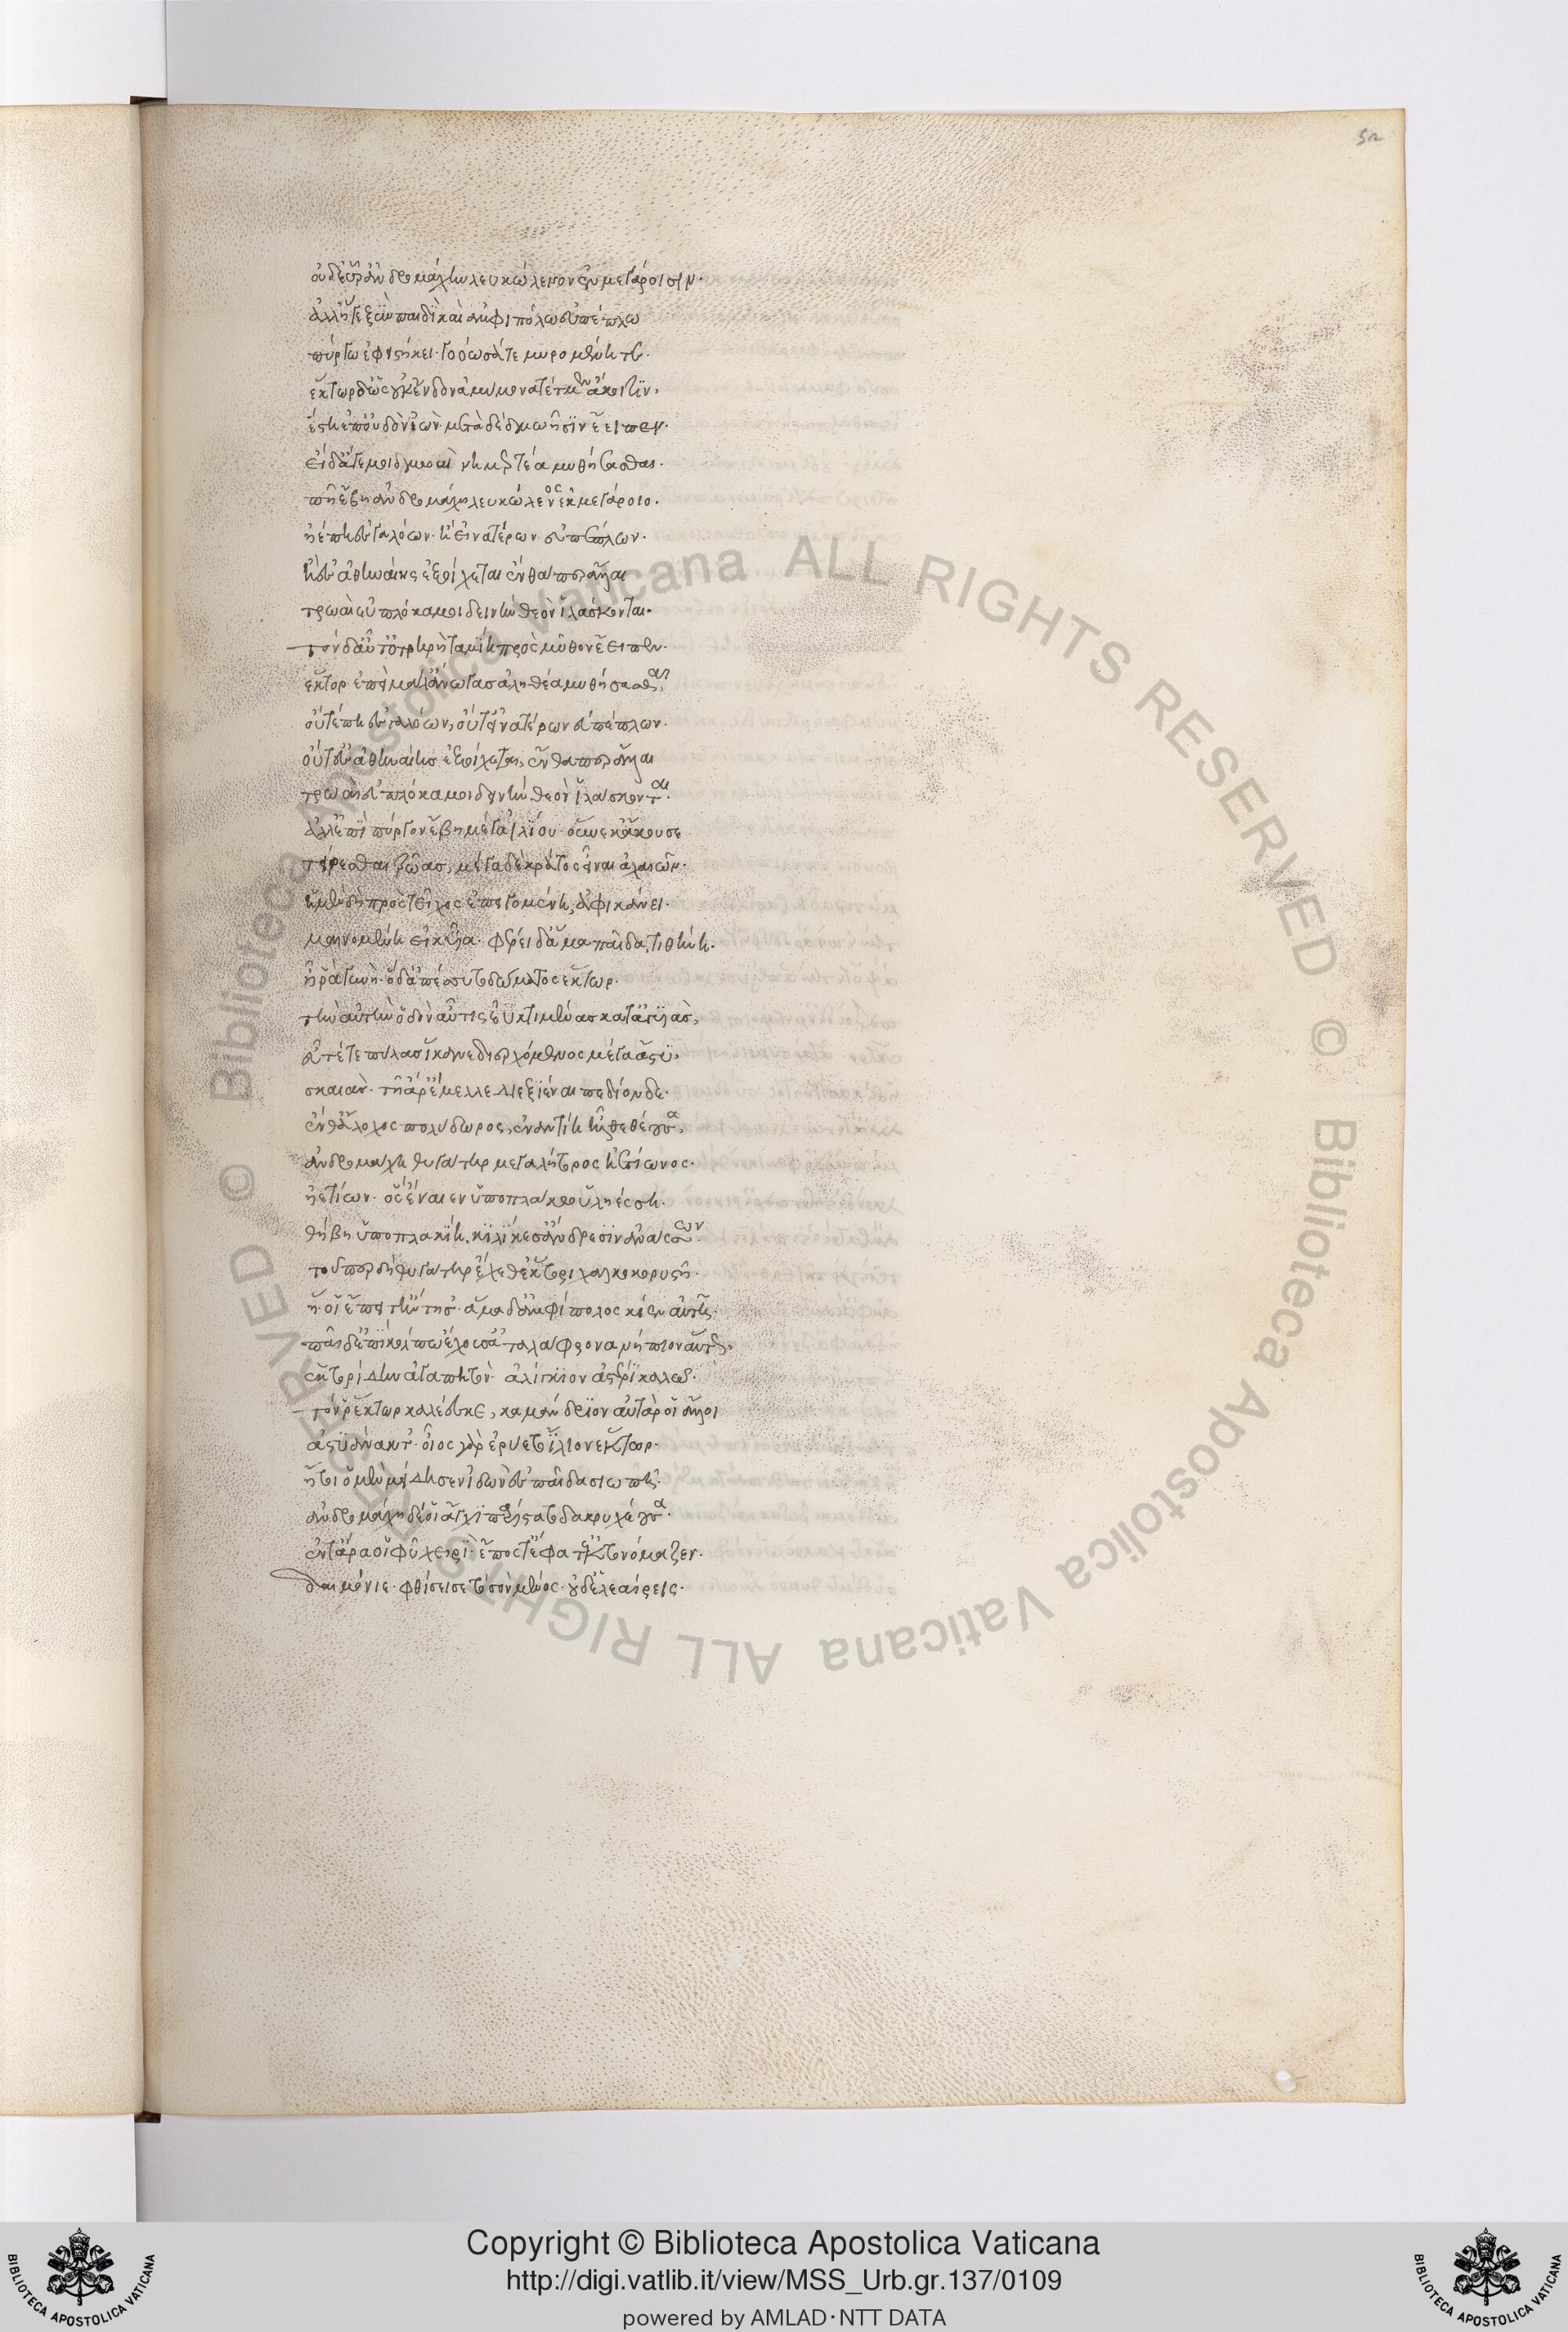 52
οὐδ' εὗρ' ἀνδρομάχην λευκώλενον ἐν μεγάροισιν.
ἀλλ' ἥγε ξὺν παιδὶ καὶ ἀμφιπόλω εὐπέπλω
πύργω ἐφεστήκει. γοόωσά τε μυρομένη τε.
ἕκτωρ δ' ὡς οὐκ ἔνδον ἀμύμονα τέτμεν ἄκοιτιν,
ἔστη ἐπ' οὐδὸν ἰών. μετὰ δὲ δμωῇσιν ἔειπεν.
εἰ δ' ἄγε μοι δμωαὶ νημερτέα μυθήσασθαι.
πῆ ἔβη ἀνδρομάχη λευκώλενος ἐκ μεγάροιο.
ἠέ πη ἐς γαλόων. ἢ εἰνατέρων εὐπέπλων.
ἢ ἐς ἀθηναίης ἐξοίχεται ἔνθα περ ἄλλαι
τρωαὶ εὐπλόκαμοι δεινὴν θεὸν ἱλάσκονται.
τὸν δ' αὖτ' ὀτρηρὴ ταμίη πρὸς μῦθον ἔειπεν.
ἕκτορ ἐπεὶ μάλ' ἄνωγας ἀληθέα μυθήσασθαι,
οὔτέ πη ἐς γαλόων, οὔτ' εἰνατέρων εὐπέπλων.
οὔτ' ἐς ἀθηναίης ἐξοίχεται, ἔνθα περ ἄλλαι
τρωαὶ εὐπλόκαμοι δεινὴν θεὸν ἱλάσκονται.
ἀλλ' ἐπὶ πύργον ἔβη μέγαν ἰλίου. οὕνεκ' ἄκουσε
τείρεσθαι τρῶας, μέγα δὲ κράτος εἶναι ἀχαιῶν.
ἡ μὲν δὴ πρὸς τεῖχος ἐπειγομένη ἀφικάνει.
μαινομένη εἰκυῖα. φέρει δ' ἅμα παῖδα τιθήνη.
ἦ ῥα γυνὴ. ὁ δ' ἀπέσσυτο δώματος ἕκτωρ.
τὴν αὐτὴν ὁδὸν αὖτις ἐϋκτιμένας κατ' ἀγυιάς,
εὖτε πύλας ἵκανε διερχόμενος μέγα ἄστυ.
σκαιὰς. τῇ ἄρ' ἔμελλε διεξίεναι πεδίονδε.
ἔνθ' ἄλοχος πολύδωρος, ἐναντίη ἦλθε θέουσα,
ἀνδρομάχη θυγάτηρ μεγαλήτορος ἠετίωνος.
ἠετίων. ὃς ἔναιεν ὑποπλάκω ὑληέσση.
θήβη ὑποπλακίη, κιλίκεσσ' ἄνδρεσσιν ἀνάσσων.
τοῦπερ δὴ θυγάτηρ ἔχεθ' ἕκτορι χαλκοκορυστῇ.
ἥ. οἱ ἔπειτ' ἤντησ'. ἅμα δ' ἀμφίπολος κίεν αὐτῇ.
παῖδ' ἐπὶ κόλπω ἔχουσ' ἀταλάφρονα νήπιον αὕτως.
ἑκτορίδην ἀγαπητὸν ἀλίγκιον ἀστέρι καλῶ.
τόν ῥ' ἕκτωρ καλέεσκε, καμάνδριον αὐτὰρ οἱ ἄλλοι
ἀστυάνακτ'. οἶος γὰρ ἐρύετο ἴλιον ἕκτωρ.
ἤτοι ὁ μὲν μείδησεν ἰδὼν ἐς παῖδα σιωπῇ.
ἀνδρομάχη δέ οἱ ἄγχι παρίστατο δακρυχέουσα.
ἔν τ' ἄρα οἱ φῦ χειρί. ἔπος τ' ἔφατ' ἔκ τ' ὀνόμαζεν.
δαιμόνιε. φθίσει σε τὸ σὸν μένος. οὐδ' ἐλεαίρεις.
© Biblioteca Apostolica Vaticana ALL RIGHTS RESERVED © Biblioteca Apostolica Vaticana ALL RIGHTS RESERVED
Copyright © Biblioteca Apostolica Vaticana
http://digi.vatlib.it/view/MSS_Urb.gr.137/0109
powered by AMLAD·NTT DATA
BIBLIOTECA APOSTOLICA VATICANA
BIBLIOTECA APOSTOLICA VATICANA